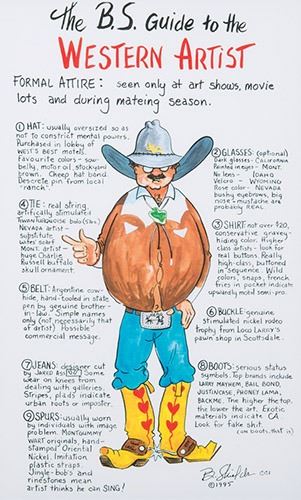 the B.S. Guide to the
WESTERN ARTIST
FORMAL ATTIRE: seen only at art shows, movie
lots and during mateing season.
① HAT: usually oversized so as
not to constrict mental powers.
Purchased in lobby of
WEST'S BEST motels.
Favourite colors - sow-
belly, motor oil, stockyard
brown. Cheep hat band.
Descrete pin from local
"ranch".
② GLASSES: (optional)
Dark glasses - CALIFORNIA
Painted images - MONT.
No lens - IDAHO
Velcro - WYOMING
Rose color - NEVADA
bushy eyebrows, big
nose + mustache are
probably REAL
③ SHIRT: not over $20,
conservative gravey
hiding color. Higher
class artists - look
for real buttons. Really
high-class, buttoned
in sequence. Wild
colors, snaps, french
fries in pocket indicate
upwardly mobil semi-pro.
④ TIE: real string,
artificially stimulated
TIAWAN TURQUOISE bolo (slide).
NEVADA artist -
substitute
water scarf
MONT. artist -
huge Charlie
Russell buffalo
skull ornament.
⑤ BELT: Argentine cow-
hide, hand-tooled in state
pen by genuine brother-
in-law. Simple names
only (not necessarily that
of artist) Possible
commercial message.
⑥ BUCKLE: genuine
stimulated nickel rodeo
trophy from LOCO LARRY'S
pawn shop in Scottsdale.
⑦ JEANS: designer cut
by JAKED Assoc. Some
wear on knees from
dealing with galleries.
Stripes, plaids indicate
urban roots or imposter.
⑧ BOOTS: serious status
symbols. Top brands include
LARRY MAYHEM, BAIL BOND,
JUSTINCASE, PHONEY LAMA,
BACKME. The higher the top,
the lower the art. Exotic
materials indicate CA.
Look for fake shit.
(on boots, that is)
⑨ SPURS: usually worn
by individuals with image
problem. MONTGUMMERY
WART originals, hand-
stamped Oriental
Nickel. Imitation
plastic straps.
Jingle-bob's and
rinestones mean
artist thinks he can SING!
©1995